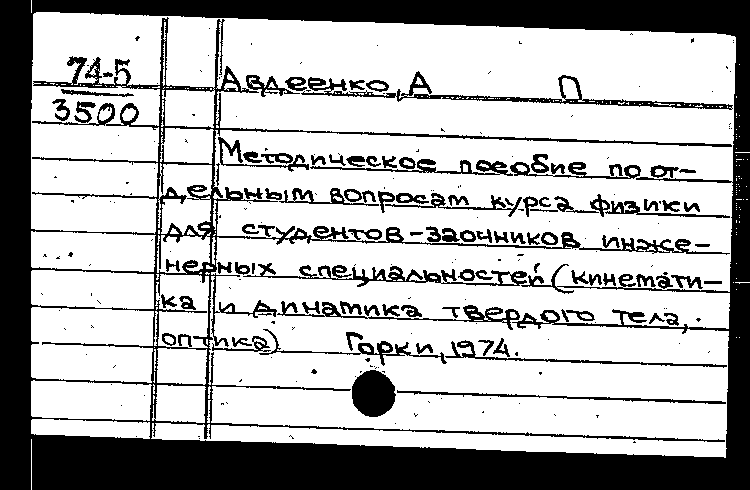 74-5
3500
Авдеенко, А П
Методическое пособие по от-
дельным вопросам курса физики
для студентов-заочников инже-
нерных специальностей (кинемати-
ка и динатика твердого тела,
оптика) Горки, 1974.